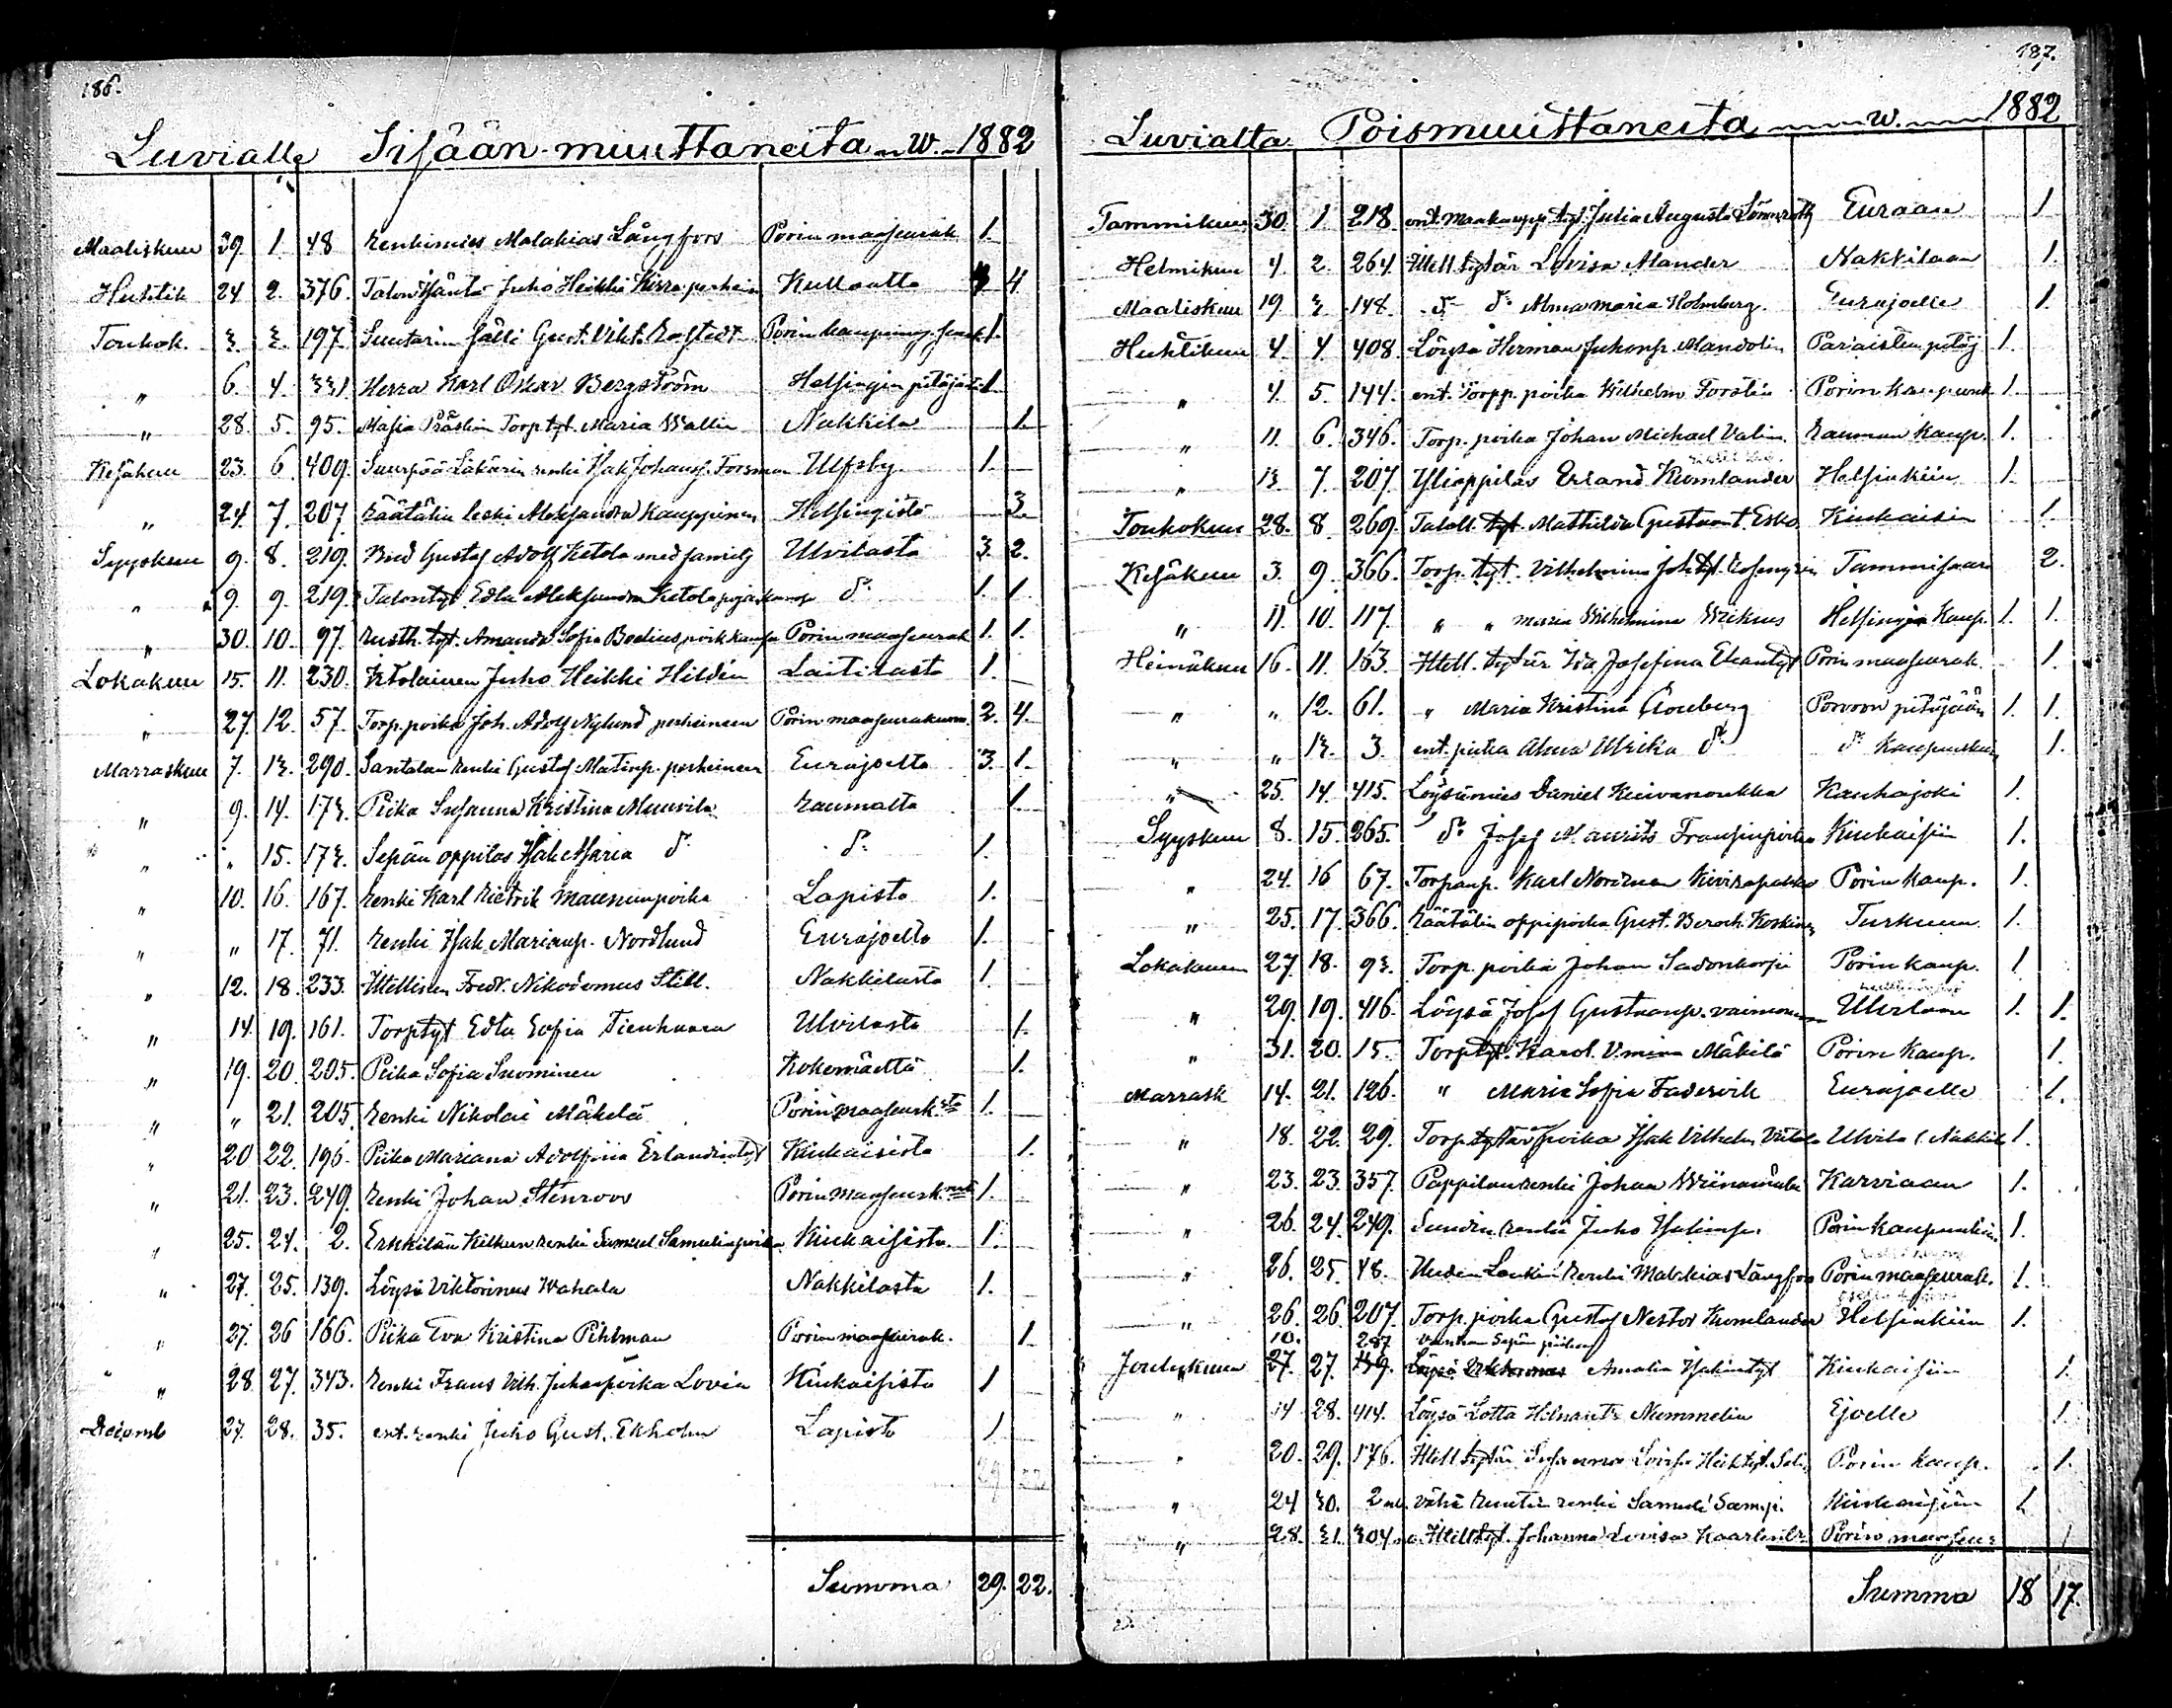 186.
Luvialle Sisään muuttaneita W. 1882
Maaliskuu 29. 1. 48 Renkimies Malakias Långfors Porin maaseurak. 1.
Huhtik 24 2. 376. Talon Isäntä Juho Heikki Kirra perhein Kullaalta 4 4.
Toukok. 3. 3. 197. Suutarin sälli Gust. Vikt. Porin kaupung. seurak 1.
" 6. 4. 331 Herra Karl Oskar Bergström Helsingin pitäjästä 1.
" 28. 5. 95. Torp tyt. Maria Wallin Nakkila 1.
Kesäkuu 23. 6 409. Suurpää Läkärin renki Isak Johansp. Forsman Ulfsby 1.
" 24. 7. 207. Räätälin leski Aleksandra Kauppinen Helsingistä 3.
Syyskuu 9. 8. 219. Gustaf Adolf Ketola med familj Ulvilasta 3. 2.
" 9. 9. 219. Talontyt. Edla Aleksandra Ketola do 1. 1.
" 30. 10. 97. Rusth. tyt. Amanda Sofia Bodius poik. kanssa Porin maaseurak 1. 1.
Lokakuu 15. 11. 230. Itolainen Juho Heikki Hildén Laitilasta 1.
" 27. 12. 57. Torp. poika Joh. Adolf Nylund perheineen Porin maaseurakunn. 2. 4.
Marraskuu 7. 13. 290. Santalan renki Gustaf Matinp. perheineen Eurajoelta 3. 1.
" 9. 14. 173. Piika Susanna Kristina Muurila Raumalta 1.
" " 15. 173. Sepän oppilas Isak Maria do do 1.
" 10. 16. 167. Renki Karl Rietrik Maununpoika Lapista 1.
" " 17. 71. Renki Isak Marianp. Nordlund Eurajoelta 1.
" 12. 18. 233. Itellisen Fredr. Nikodemus Still. Nakkilasta 1.
" 14. 19. 161. Torptyt Edla Sofia Tienhaara Ulvilasta 1.
" 19. 20. 205. Piika Sofia Suominen Kokemäeltä 1.
" " 21. 205. Renki Nikolai Mäkelä Porin maaseurk.sta 1.
" 20 22. 196. Piika Mariana Adolfiina Erlandintyt Kiukaisista 1.
" 21. 23. 249. Renki Johan Stenroos Porin maaseurk. 1.
" 25. 24. 2. Erkkilän Kilkun renki Samuel Samulinpoika Kiukaisista 1.
" 27. 25. 139. Löysä Viktorinus Wahala Nakkilasta 1.
" 27. 26 166. Piika Eva Kristina Pihlman Porin maaseurak. 1.
" 28. 27. 343. Renki Frans Vilh. Juhanpoika Lovin Kiukaisista 1
Decemb 27. 28. 35. ent. renki Juho Gust. Ekholm Lapista 1
Summa 29. 22.
187.
Luvialta Poismuuttaneita W. 1882
Tammikuu 30. 1. 218. ent. maakaupp. tyt. Julia Augusta Lönnroth Euraan 1
Helmikuu 4. 2. 264. Itell. tytär Lovisa Alander Nakkilaan 1.
Maaliskuu 19 3. 148. do do Alma Maria Holmberg. Eurajoelle 1.
Huhtikuu 4. 4 408. Löysä Herman Juhonp. Mandolin Paraisten pitäj 1.
" 4. 5. 144. ent. Torpp. poika Wilhelm Forstén Porin kaupunk 1.
" 11. 6. 346. Torp. poika Johan Michael Valin. Rauman kaup. 1.
" 13. 7. 207. Ylioppilas Erland Kumlander Helsinkiin 1.
Toukokuu 28. 8. 269. Taloll. tyt. Mathilda Gustaant. Esko Kiukaisiin 1.
Kesäkuu 3. 9. 366. Torp. tyt. Vilhelmina Tammisaar 2.
" 11. 10. 117. " " Maria Wilhelmina Wikius Helsingin kaup. 1. 1.
Heinäkuu 16. 11. 163. Itell. tytär Ida Josefina Eliantyt Porin maaseurak. 1.
" " 12. 61. " Maria Kristina Åkerberg Porvoon pitäjään 1. 1.
" " 13. 3. ent. piika Alma Ulrika do do kaupunkiin 1.
" 25. 14. 415. Löysämies Daniel Kuivanoukka Kauhajoki 1.
Syyskuu 8. 15. 265. do Josef Maurits Fransinpoika Kiukaisiin 1.
" 24. 16 67. Torpanp. Karl Nordman Kivirapakko Porin kaup. 1.
" 25. 17. 366. Räätälin oppipoika Gust. Koskinen Turkuun 1.
Lokakuun 27. 18. 93. Torp. poika Johan Sadonkorpi Porin kaup. 1.
" 29. 19. 416. Löysä Josef Gustaanp. vaimoneen Ulvilaan 1. 1.
" 31. 20. 15. Torptyt. Karol. Vmina Mäkilä Porin kaup. 1.
Marrask 14. 21. 126. " Maria Sofia Fadervik Eurajoelle 1.
" 18. 22. 29. Torp. tytär poika Isak Vilhelm Ulvila (Nakkila 1.
" 23. 23. 357. Pappilan renki Johan Wiinamäki Karviaan 1.
" 26. 24. 249. Sundin renki Juho Isakinp. Porin kaupunkiin 1.
" 26. 25. 48. Uuden Lankin renki Malakias Långfors Porin maaseurak. 1.
" 26. 26. 207. Torp. poika Gustaf Nestor Kumlander Helsinkiin 1.
10. 287 Vanhan Sepän piika
Joulukuun 27. 27. 139. Löysä Viktorinus Amalia Isakintyt Kiukaisiin 1.
" 14 28. 414. Löysä Lotta Nummelin Ejoelle 1
" 20. 29. 176. Itell. tytär Susanna Lovisa Heikint. Porin kaup. 1.
" 24 30. 2 renki Samuli Samp. Kiukaisiin 1
" 28. 31. 304 Itell. tyt. Johanna Lovisa Porin maaseur 1
Summa 18 17.